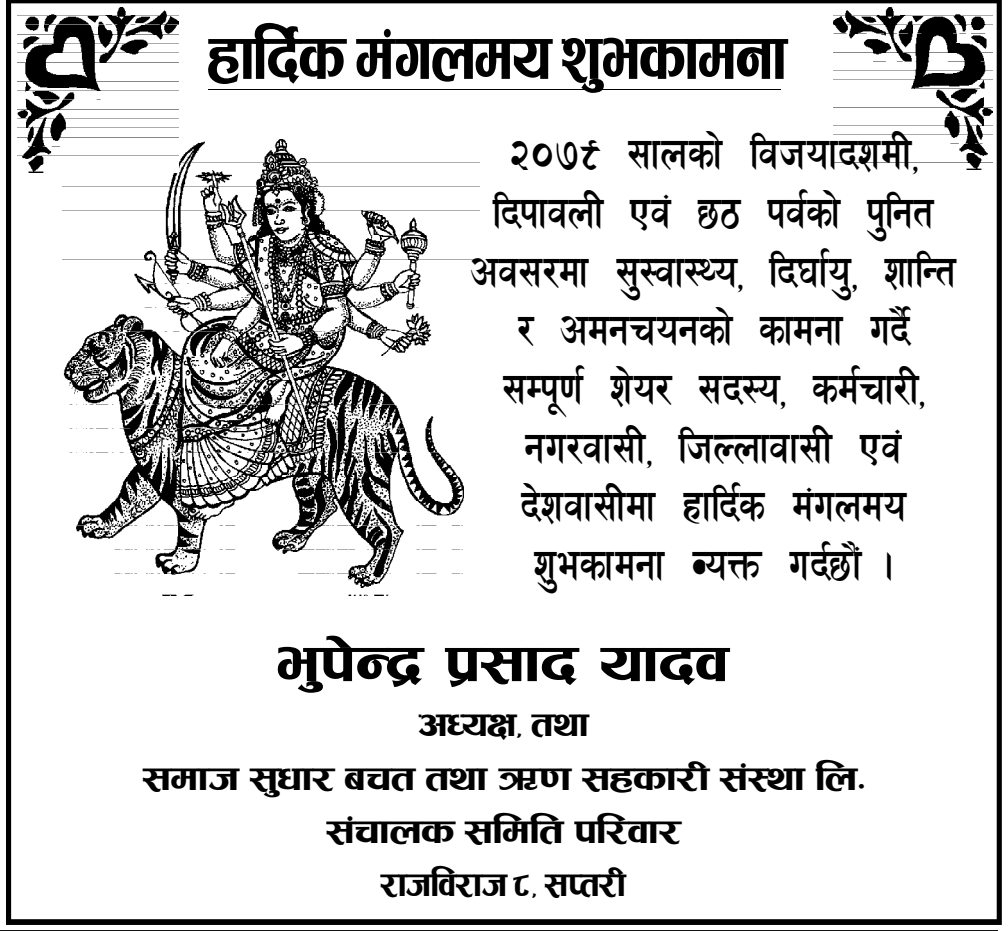 हार्दिक मंगलमय शुभकामना
२०७९ सालको विजयादशमी,
दिपावली एवं छठ पर्वको पुनित
अवसरमा सुस्वास्थ्य, दिर्घायु, शान्ति
र अमनचयनको कामना गर्दै
सम्पूर्ण शेयर सदस्य, कर्मचारी,
नगरवासी, जिल्लावासी एवं
देशवासीमा हार्दिक मंगलमय
शुभकामना ब्यक्त गर्दछौं ।
भुपेन्द्र प्रसाद यादव
अध्यक्ष, तथा
समाज सुधार बचत तथा ऋण सहकारी संस्था लि.
संचालक समिति परिवार
राजविराज ८, सप्तरी